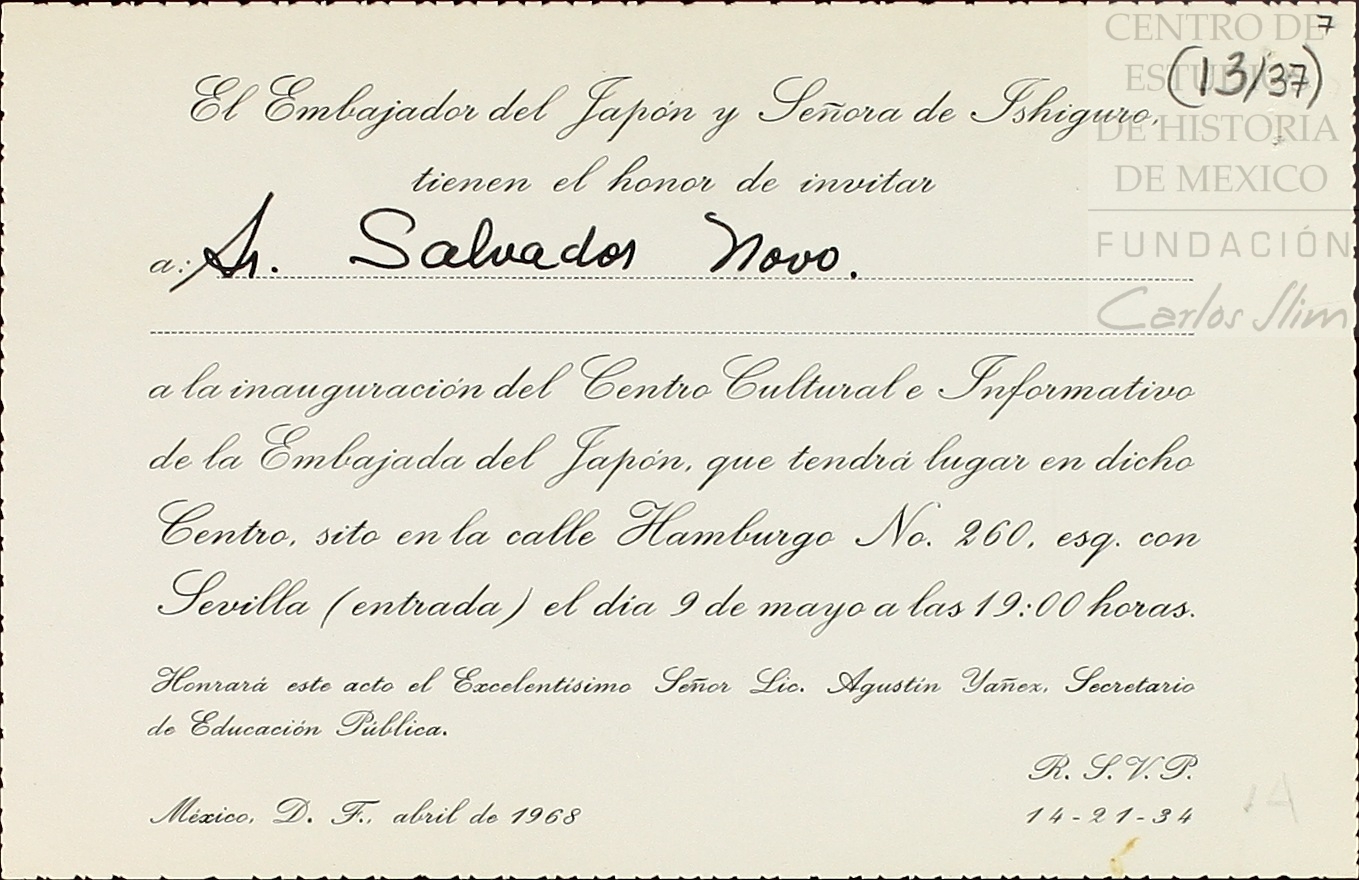 CENTRO DE
ESTUDIOS
DE HISTORIA
DE MEXICO
FUNDACIÓN
Carlos Slim
7
(13/37)
El Embajador del Japón y Señora de Ishiguro,
tienen el honor de invitar
a: Sr. Salvador Novo.
a la inauguración del Centro Cultural e Informativo
de la Embajada del Japón, que tendrá lugar en dicho
Centro, sito en la calle Hamburgo No. 260, esq. con
Sevilla (entrada) el día 9 de mayo a las 19:00 horas.
Honrará este acto el Excelentísimo Señor Lic. Agustín Yañez, Secretario
de Educación Pública.
R. S. V. P.
México, D. F., abril de 1968
14-21-34